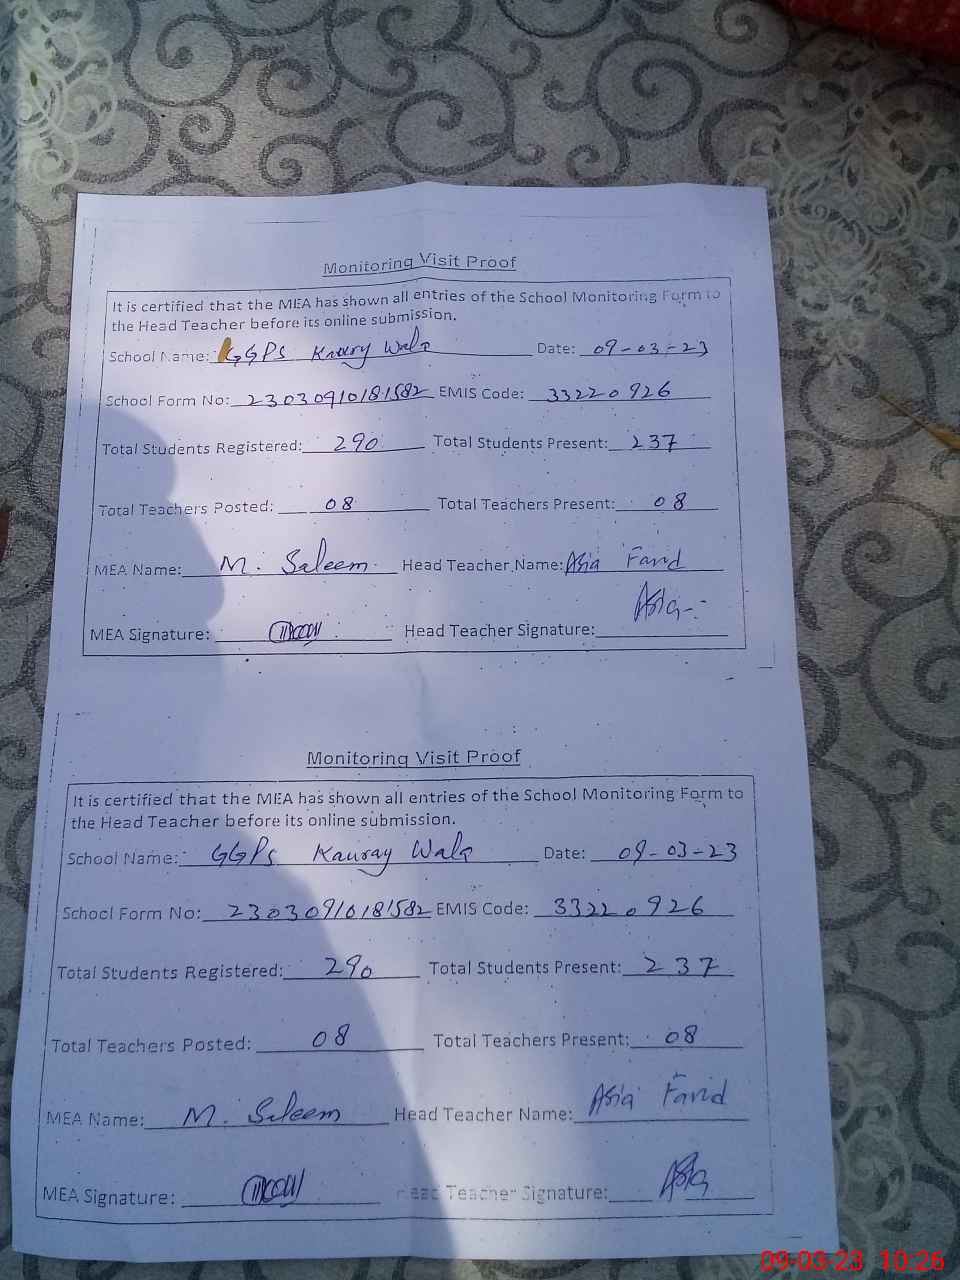 Monitoring Visit Proof
It is certified that the MEA has shown all entries of the School Monitoring Form to
the Head Teacher before its online submission.
School Name: GGPS Kauray Wala Date: 09-03-23
School Form No: 23030910181582 EMIS Code: 33220926
Total Students Registered: 290 Total Students Present: 237
Total Teachers Posted: 08 Total Teachers Present: 08
MEA Name: M. Saleem Head Teacher Name: Asia Farid
MEA Signature: Head Teacher Signature: Asia
Monitoring Visit Proof
It is certified that the MEA has shown all entries of the School Monitoring Form to
the Head Teacher before its online submission.
School Name: GGPS Kauray Wala Date: 09-03-23
School Form No: 23030910181582 EMIS Code: 33220926
Total Students Registered: 290 Total Students Present: 237
Total Teachers Posted: 08 Total Teachers Present: 08
MEA Name: M. Saleem Head Teacher Name: Asia Farid
MEA Signature: Head Teacher Signature: Asia
09-03-23 10:26